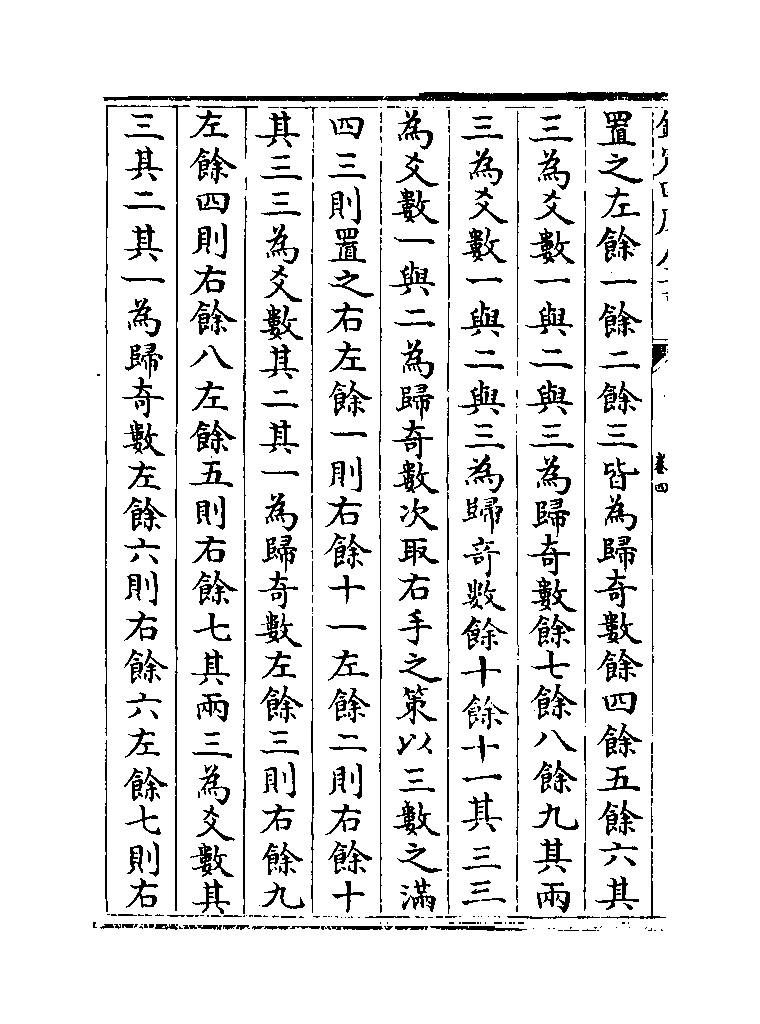 置之左餘一餘二餘三皆為歸奇數餘四餘五餘六其
三為爻數一與二與三為歸奇數餘七餘八餘九其兩
三為爻數一與二與三為歸竒数餘十餘十一其三三
為爻數一與二為歸奇數次取右手之策以三數之滿
四三則置之右左餘一則右餘十一左餘二則右餘十
其三三為爻數其二其一為歸奇數左餘三則右餘九
左餘四則右餘八左餘五則右餘七其兩三為爻數其
三其二其一為歸奇數左餘六則右餘六左餘七則右
卷四